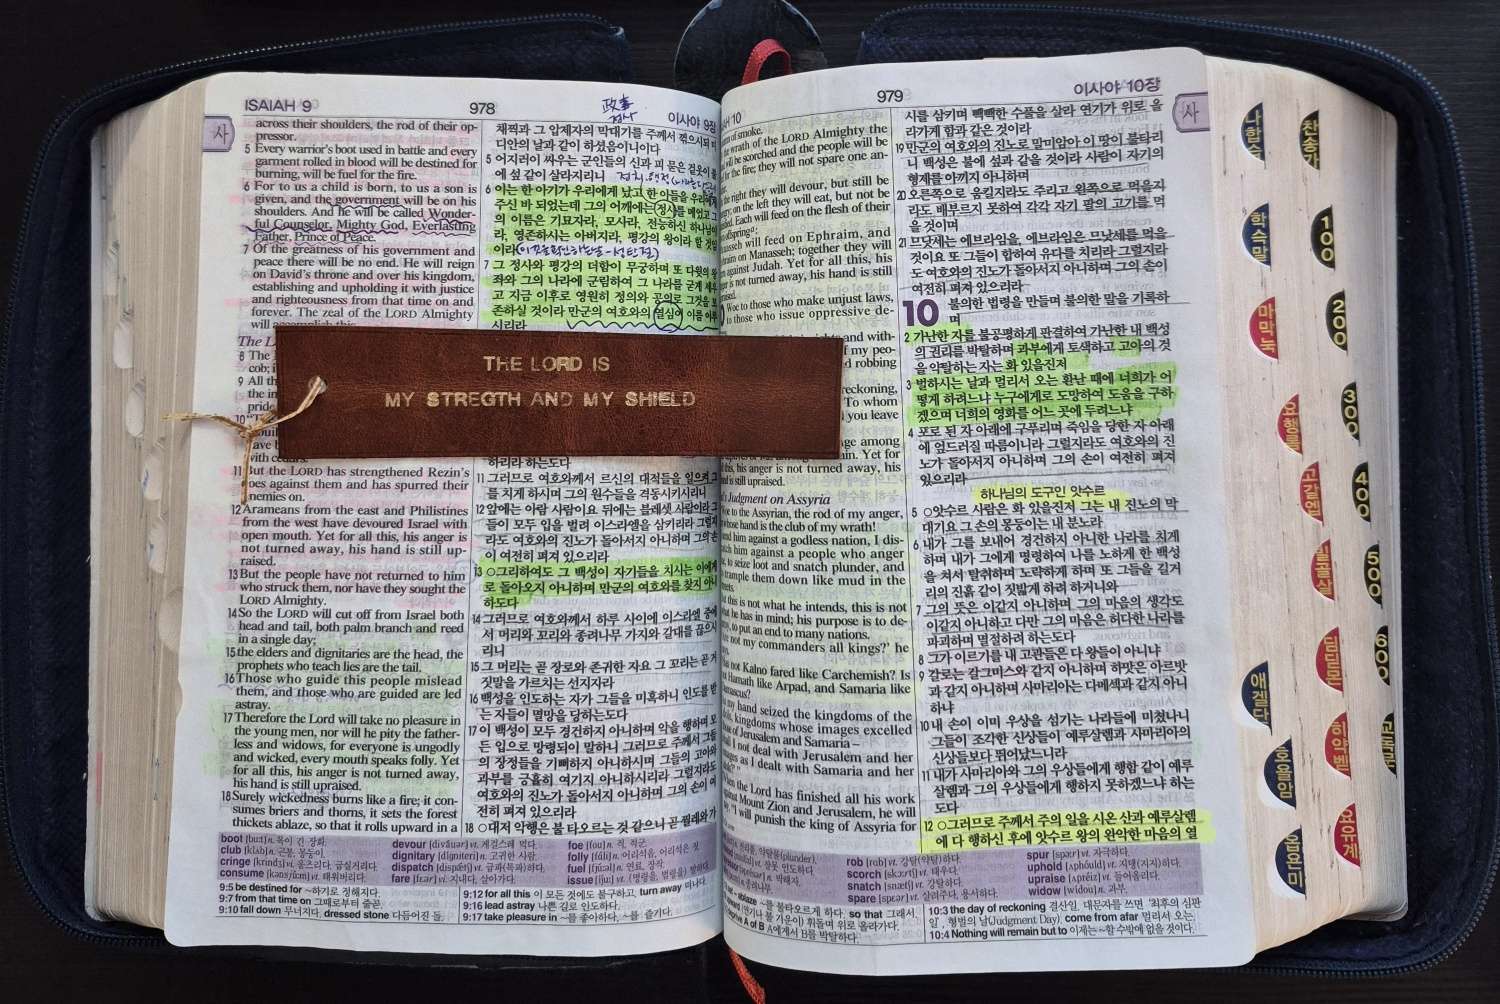 ISAIAH 9
978
政事
이사야 9장
사
across their shoulders, the rod of their op-
pressor.
5 Every warrior's boot used in battle and every
garment rolled in blood will be destined for
burning, will be fuel for the fire.
6 For to us a child is born, to us a son is
given, and the government will be on his
shoulders. And he will be called Wonder-
ful Counselor, Mighty God, Everlasting
Father, Prince of Peace.
7 Of the greatness of his government and
peace there will be no end. He will reign
on David's throne and over his kingdom,
establishing and upholding it with justice
and righteousness from that time on and
forever. The zeal of the LORD Almighty
will accomplish this.
8 The
9 All th
the in
pride
10
11 But the LORD has strengthened Rezin's
foes against them and has spurred their
enemies on.
12 Arameans from the east and Philistines
from the west have devoured Israel with
open mouth. Yet for all this, his anger is
not turned away, his hand is still up-
raised.
13 But the people have not returned to him
who struck them, nor have they sought the
LORD Almighty.
14 So the LORD will cut off from Israel both
head and tail, both palm branch and reed
in a single day;
15 the elders and dignitaries are the head, the
prophets who teach lies are the tail.
16 Those who guide this people mislead
them, and those who are guided are led
astray.
17 Therefore the Lord will take no pleasure in
the young men, nor will he pity the father-
less and widows, for everyone is ungodly
and wicked, every mouth speaks folly. Yet
for all this, his anger is not turned away,
his hand is still upraised.
18 Surely wickedness burns like a fire; it con-
sumes briers and thorns, it sets the forest
thickets ablaze, so that it rolls upward in a
채찍과 그 압제자의 막대기를 주께서 꺾으시되 미
디안의 날과 같이 하셨음이니이다
5 어지러이 싸우는 군인들의 신과 피 묻은 겉옷이 불
에 섶 같이 살라지리니
6 이는 한 아기가 우리에게 났고 한 아들을 우리에게
주신 바 되었는데 그의 어깨에는 정사를 메었고 그
의 이름은 기묘자라, 모사라, 전능하신 하나님이
라, 영존하시는 아버지라, 평강의 왕이라 할 것임
이라
7 그 정사와 평강의 더함이 무궁하며 또 다윗의 왕
좌와 그의 나라에 군림하여 그 나라를 굳게 세우
고 지금 이후로 영원히 정의와 공의로 그것을 보
존하실 것이라 만군의 여호와의 열심이 이를 이루
시리라
THE LORD IS
MY STREGTH AND MY SHIELD
하리라 하는도다
11 그러므로 여호와께서 르신의 대적들을 일으켜 그
를 치게 하시며 그의 원수들을 격동시키시리니
12 앞에는 아람 사람이요 뒤에는 블레셋 사람이라 그
들이 모두 입을 벌려 이스라엘을 삼키리라 그럴지
라도 여호와의 진노가 돌아서지 아니하며 그의 손
이 여전히 펴져 있으리라
13 ○그리하여도 그 백성이 자기들을 치시는 이에게
로 돌아오지 아니하며 만군의 여호와를 찾지 아니
하도다
14 그러므로 여호와께서 하루 사이에 이스라엘 중에
서 머리와 꼬리와 종려나무 가지와 갈대를 끊으시
리니
15 그 머리는 곧 장로와 존귀한 자요 그 꼬리는 곧 거
짓말을 가르치는 선지자라
16 백성을 인도하는 자가 그들을 미혹하니 인도를 받
는 자들이 멸망을 당하는도다
17 이 백성이 모두 경건하지 아니하며 악을 행하며 모
든 입으로 망령되이 말하니 그러므로 주께서 그들
의 장정들을 기뻐하지 아니하시며 그들의 고아와
과부를 긍휼히 여기지 아니하시리라 그럴지라도
여호와의 진노가 돌아서지 아니하며 그의 손이 여
전히 펴져 있으리라
18 ○대저 악행은 불 타오르는 것 같으니 곧 찔레와 가
boot [buːt] n. 목이 긴 장화.
club [klʌb] n. 곤봉, 몽둥이.
cringe [krindʒ] vi. 움츠리다, 굽실거리다.
consume [kənsjúːm] vt. 태워버리다.
devour [diváuər] vt. 게걸스레 먹다.
dignitary [dígnitèri] n. 고귀한 사람.
dispatch [dispǽtʃ] vt. 급파(특파)하다.
fare [fɛər] vi. 지내다, 살아가다.
foe [fou] n. 적, 적군.
folly [fáli] n. 어리석음, 어리석은 짓
fuel [fjúːəl] n. 연료, 장작.
issue [íʃuː] vt. (명령을, 법령을) 발하다.
9:5 be destined for ~하기로 정해지다.
9:7 from that time on 그때로부터 줄곧.
9:10 fall down 무너지다. dressed stone 다듬어진 돌.
9:12 for all this 이 모든 것에도 불구하고, turn away 떠나다.
9:16 lead astray 나쁜 길로 인도하다.
9:17 take pleasure in ~를 좋아하다, ~를 즐기다.
979
이사야 10장
사
of smoke.
wrath of the LORD Almighty the
will be scorched and the people will be
for the fire; they will not spare one an-
the right they will devour, but still be
on the left they will eat, but not be
Each will feed on the flesh of their
offspring
will feed on Ephraim, and
on Manasseh; together they will
against Judah. Yet for all this, his
is not turned away, his hand is still
Woe to those who make unjust laws,
to those who issue oppressive de-
and with-
of my peo-
robbing
reckoning,
To whom
you leave
among
Yet for
this, his anger is not turned away, his
hand is still upraised.
Judgment on Assyria
to the Assyrian, the rod of my anger,
whose hand is the club of my wrath!
him against a godless nation, I dis-
him against a people who anger
to seize loot and snatch plunder, and
trample them down like mud in the
this is not what he intends, this is not
what he has in mind; his purpose is to de-
to put an end to many nations.
not my commanders all kings?' he
not Kalno fared like Carchemish? Is
Hamath like Arpad, and Samaria like
Damascus?
my hand seized the kingdoms of the
kingdoms whose images excelled
of Jerusalem and Samaria—
I not deal with Jerusalem and her
as I dealt with Samaria and her
the Lord has finished all his work
Mount Zion and Jerusalem, he will
"I will punish the king of Assyria for
시를 삼키며 빽빽한 수풀을 살라 연기가 위로 올
라가게 함과 같은 것이라
19 만군의 여호와의 진노로 말미암아 이 땅이 불타리
니 백성은 불에 섶과 같을 것이라 사람이 자기의
형제를 아끼지 아니하며
20 오른쪽으로 움킬지라도 주리고 왼쪽으로 먹을지
라도 배부르지 못하여 각각 자기 팔의 고기를 먹
을 것이며
21 므낫세는 에브라임을, 에브라임은 므낫세를 먹을
것이요 또 그들이 합하여 유다를 치리라 그럴지라
도 여호와의 진노가 돌아서지 아니하며 그의 손이
여전히 펴져 있으리라
10 불의한 법령을 만들며 불의한 말을 기록하
며
2 가난한 자를 불공평하게 판결하여 가난한 내 백성
의 권리를 박탈하며 과부에게 토색하고 고아의 것
을 약탈하는 자는 화 있을진저
3 벌하시는 날과 멀리서 오는 환난 때에 너희가 어
떻게 하려느냐 누구에게로 도망하여 도움을 구하
겠으며 너희의 영화를 어느 곳에 두려느냐
4 포로 된 자 아래에 구푸리며 죽임을 당한 자 아래
에 엎드러질 따름이니라 그럴지라도 여호와의 진
노가 돌아서지 아니하며 그의 손이 여전히 펴져
있으리라
하나님의 도구인 앗수르
5 ○앗수르 사람은 화 있을진저 그는 내 진노의 막
대기요 그 손의 몽둥이는 내 분노라
6 내가 그를 보내어 경건하지 아니한 나라를 치게
하며 내가 그에게 명령하여 나를 노하게 한 백성
을 쳐서 탈취하며 노략하게 하며 또 그들을 길거
리의 진흙 같이 짓밟게 하려 하거니와
7 그의 뜻은 이같지 아니하며 그의 마음의 생각도
이같지 아니하고 다만 그의 마음은 허다한 나라를
파괴하며 멸절하려 하는도다
8 그가 이르기를 내 고관들은 다 왕들이 아니냐
9 갈로는 갈그미스와 같지 아니하며 하맛은 아르밧
과 같지 아니하며 사마리아는 다메섹과 같지 아니
하냐
10 내 손이 이미 우상을 섬기는 나라들에 미쳤나니
그들이 조각한 신상들이 예루살렘과 사마리아의
신상들보다 뛰어났느니라
11 내가 사마리아와 그의 우상들에게 행함 같이 예루
살렘과 그의 우상들에게 행하지 못하겠느냐 하는
도다
12 ○그러므로 주께서 주의 일을 시온 산과 예루살렘
에 다 행하신 후에 앗수르 왕의 완악한 마음의 열
rob [rɑb] vt. 강탈(약탈)하다.
scorch [skɔːrtʃ] vt. 태우다.
snatch [snætʃ] vt. 강탈하다.
spare [spɛər] vt. 살려주다, 용서하다.
spur [spəːr] vt. 자극하다.
uphold [ʌphóuld] vt. 지탱(지지)하다.
upraise [ʌpréiz] vt. 들어올리다.
widow [wídou] n. 과부.
10:3 the day of reckoning 결산일, 대문자를 쓰면 '최후의 심판
일', 형벌의 날(Judgment Day). come from afar 멀리서 오는.
10:4 Nothing will remain but to 이제는 ~할 수밖에 없을 것이다.
나합습
찬송가
학슥말
100
마막눅
200
요행롬
300
고갈엡
400
빌골살
500
딤딛몬
600
애겔단
히약벧
교독문
호욜암
요유계
옵욘미